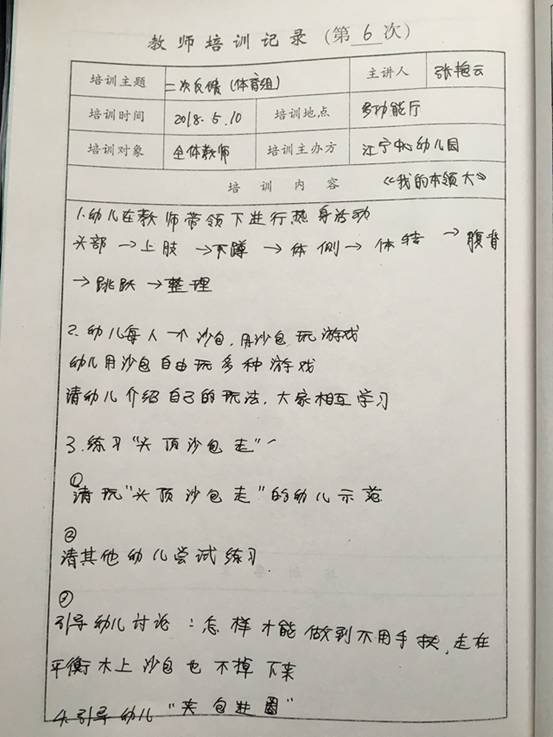 教师培训记录(第6次)
培训主题 二次反馈(体育组) 主讲人 张艳云
培训时间 2018.5.10 培训地点 多功能厅
培训对象 全体教师 培训主办方 江宁中心幼儿园
培训内容 《我的本领大》
1.幼儿在教师带领下进行热身活动
头部→上肢→下蹲→体侧→体转→腹背
→跳跃→整理
2.幼儿每人一个沙包,用沙包玩游戏
幼儿用沙包自由玩多种游戏
请幼儿介绍自己的玩法,大家相互学习
3.练习"头顶沙包走"
①
请玩"头顶沙包走"的幼儿示范
②
请其他幼儿尝试练习
引导幼儿讨论:怎样才能做到不用手扶,走在
平衡木上沙包也不掉下来
4.引导幼儿"夹包进圈"